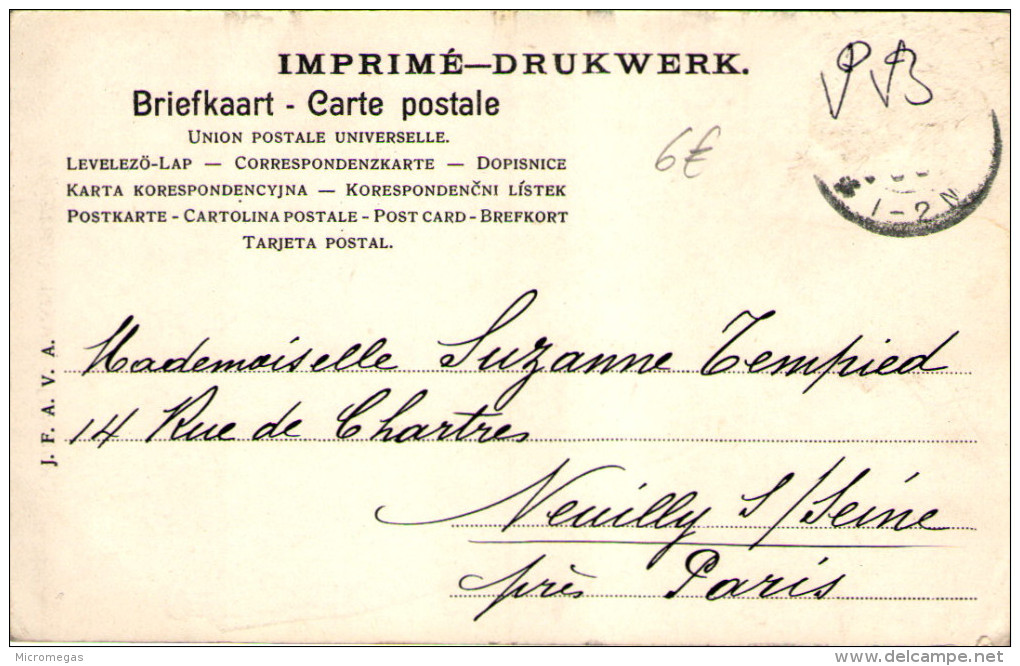 IMPRIMÉ—DRUKWERK.
Briefkaart - Carte postale
UNION POSTALE UNIVERSELLE.
LEVELEZÖ-LAP — CORRESPONDENZKARTE — DOPISNICE
KARTA KORESPONDENCYJNA — KORESPONDENČNI LÍSTEK
POSTKARTE - CARTOLINA POSTALE - POST CARD - BREFKORT
TARJETA POSTAL.
6€
1-2 N
J. F. A. V. A.
Mademoiselle Suzanne Tempied
14 Rue de Chartres
Neuilly S/Seine
près Paris
Micromegas
delcampe.net